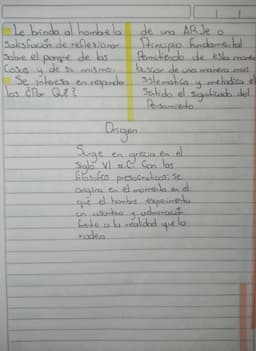 Le brinda al hombre la
Satisfacción de reflexionar
Sobre el porque de las
Cosas y de si mismo.
Se interesa en responder
los ¿Por Qué?
de una ARJe o
Principio fundamental
Permitiendo de esta manera
buscar de una manera mas
Sistematica y metodica el
Sentido el significado del
Pensamiento
Origen
Surge en grecia en el
Siglo VI a.C. Con los
filosofos presocraticos, se
origina en el momento en el
que el hombre experimenta
un asombro y admiración
frente a la realidad que lo
rodea